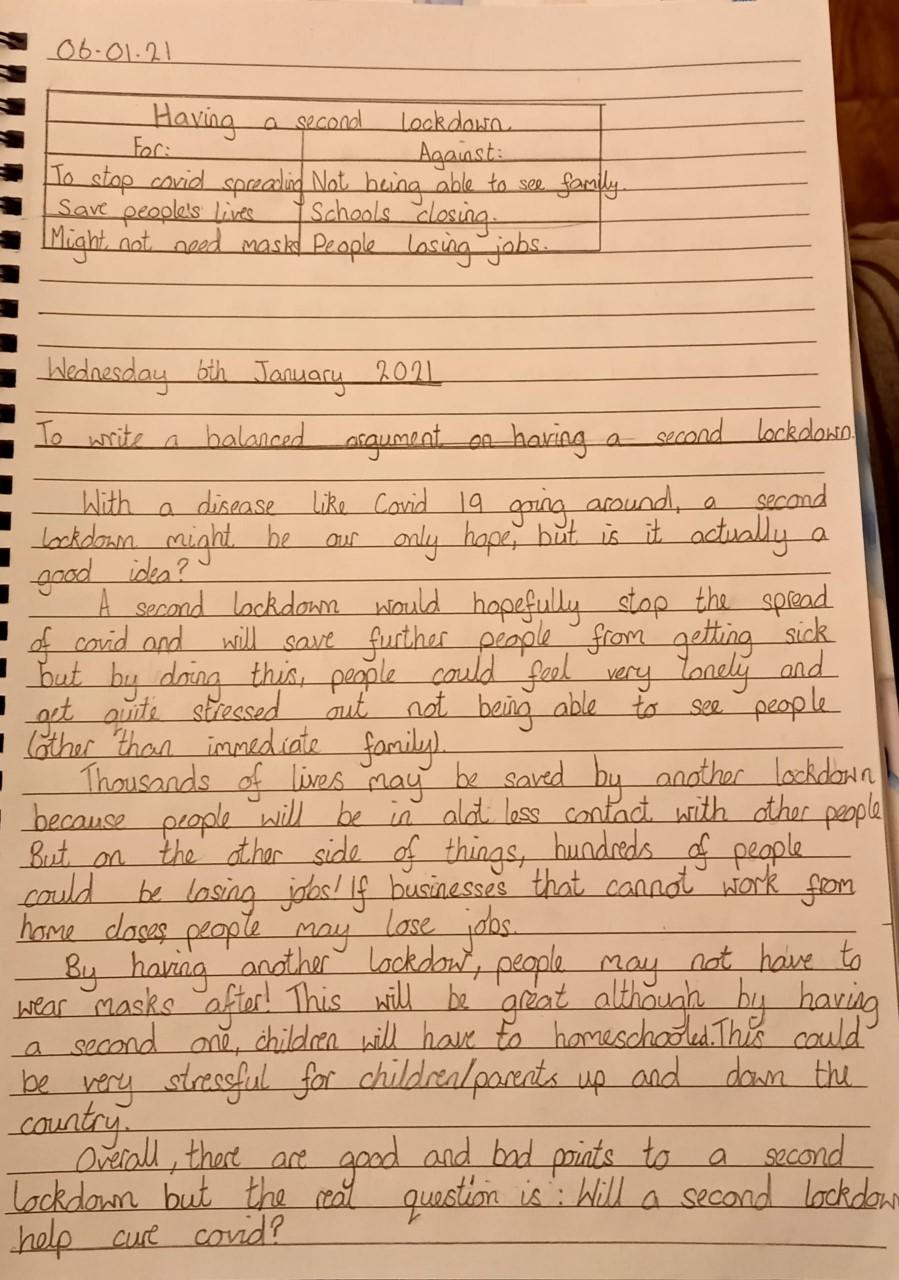 06.01.21
Having a second lockdown.
For: Against:
To stop covid spreading Not being able to see family.
Save people's lives Schools closing.
Might not need masks People losing jobs.
Wednesday 6th January 2021
To write a balanced argument on having a second lockdown.
With a disease like Covid 19 going around, a second
lockdown might be our only hope, but is it actually a
good idea?
A second lockdown would hopefully stop the spread
of covid and will save further people from getting sick
but by doing this, people could feel very lonely and
get quite stressed out not being able to see people
(other than immediate family).
Thousands of lives may be saved by another lockdown
because people will be in alot less contact with other people
But on the other side of things, hundreds of people
could be losing jobs! If businesses that cannot work from
home closes people may lose jobs.
By having another lockdow, people may not have to
wear masks after! This will be great although by having
a second one, children will have to homeschooled. This could
be very stressful for children/parents up and down the
country.
Overall, there are good and bad points to a second
lockdown but the real question is: Will a second lockdown
help cure covid?